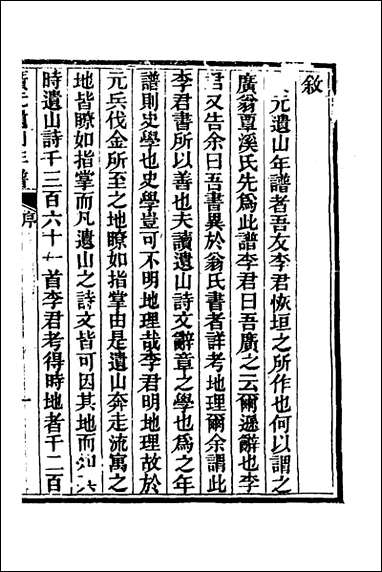 敘
元遺山年譜者吾友李君恢垣之所作也何以謂之
廣翁覃溪氏先爲此譜李君曰吾廣之云爾遜辭也李
君又告余曰吾書異於翁氏書者詳考地理爾余謂此
李君書所以善也夫讀遺山詩文辭章之學也為之年
譜則史學也史學豈可不明地理哉李君明地理故於
元兵伐金所至之地瞭如指掌由是遺山奔走流寓之
地皆瞭如指掌而凡遺山之詩文皆可因其地而知其
時遺山詩千三百六十一首李君考得時地者千二百
廣元遺山年譜 序